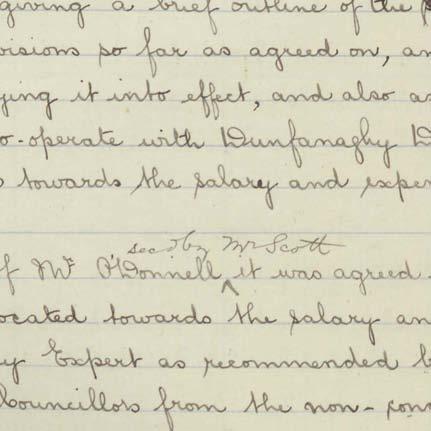 giving a brief outline of the
visions so far as agreed on, an
ying it into effect, and also as
o-operate with Dunfanaghy D
s towards the salary and exper
sec'd by Mr Scott
f Mr O'Donnell ^ it was agreed
ocated towards the salary an
y Expert as recommended b
Councillors from the non-con